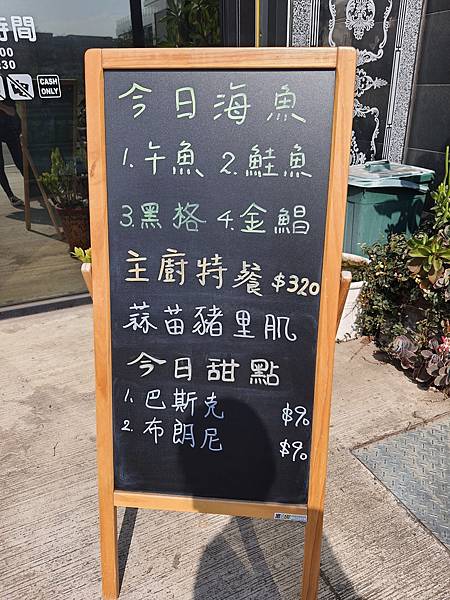 時間
00
30
CASH
ONLY
今日海魚
1.午魚 2.鮭魚
3.黑格 4.金鯧
主廚特餐 $320
蒜苗豬里肌
今日甜點
1.巴斯克 $90
2.布朗尼 $90